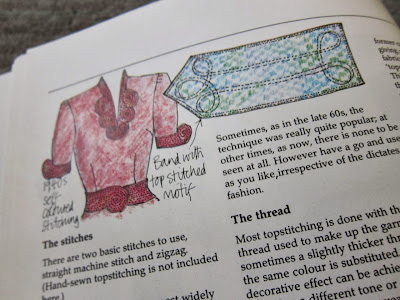 1940s
self-
coloured
stitching
Band with
top stitched
motif
The stitches
There are two basic stitches to use,
straight machine stitch and zigzag.
(Hand-sewn topstitching is not included
here.)
most widely
former
giving
fabric
'top
Th
Sometimes, as in the late 60s, the
technique was really quite popular; at
other times, as now, there is none to be
seen at all. However have a go and use
as you like, irrespective of the dictates
fashion.
The thread
Most topstitching is done with the
thread used to make up the garm
sometimes a slightly thicker thr
the same colour is substituted.
decorative effect can be achie
different tone or